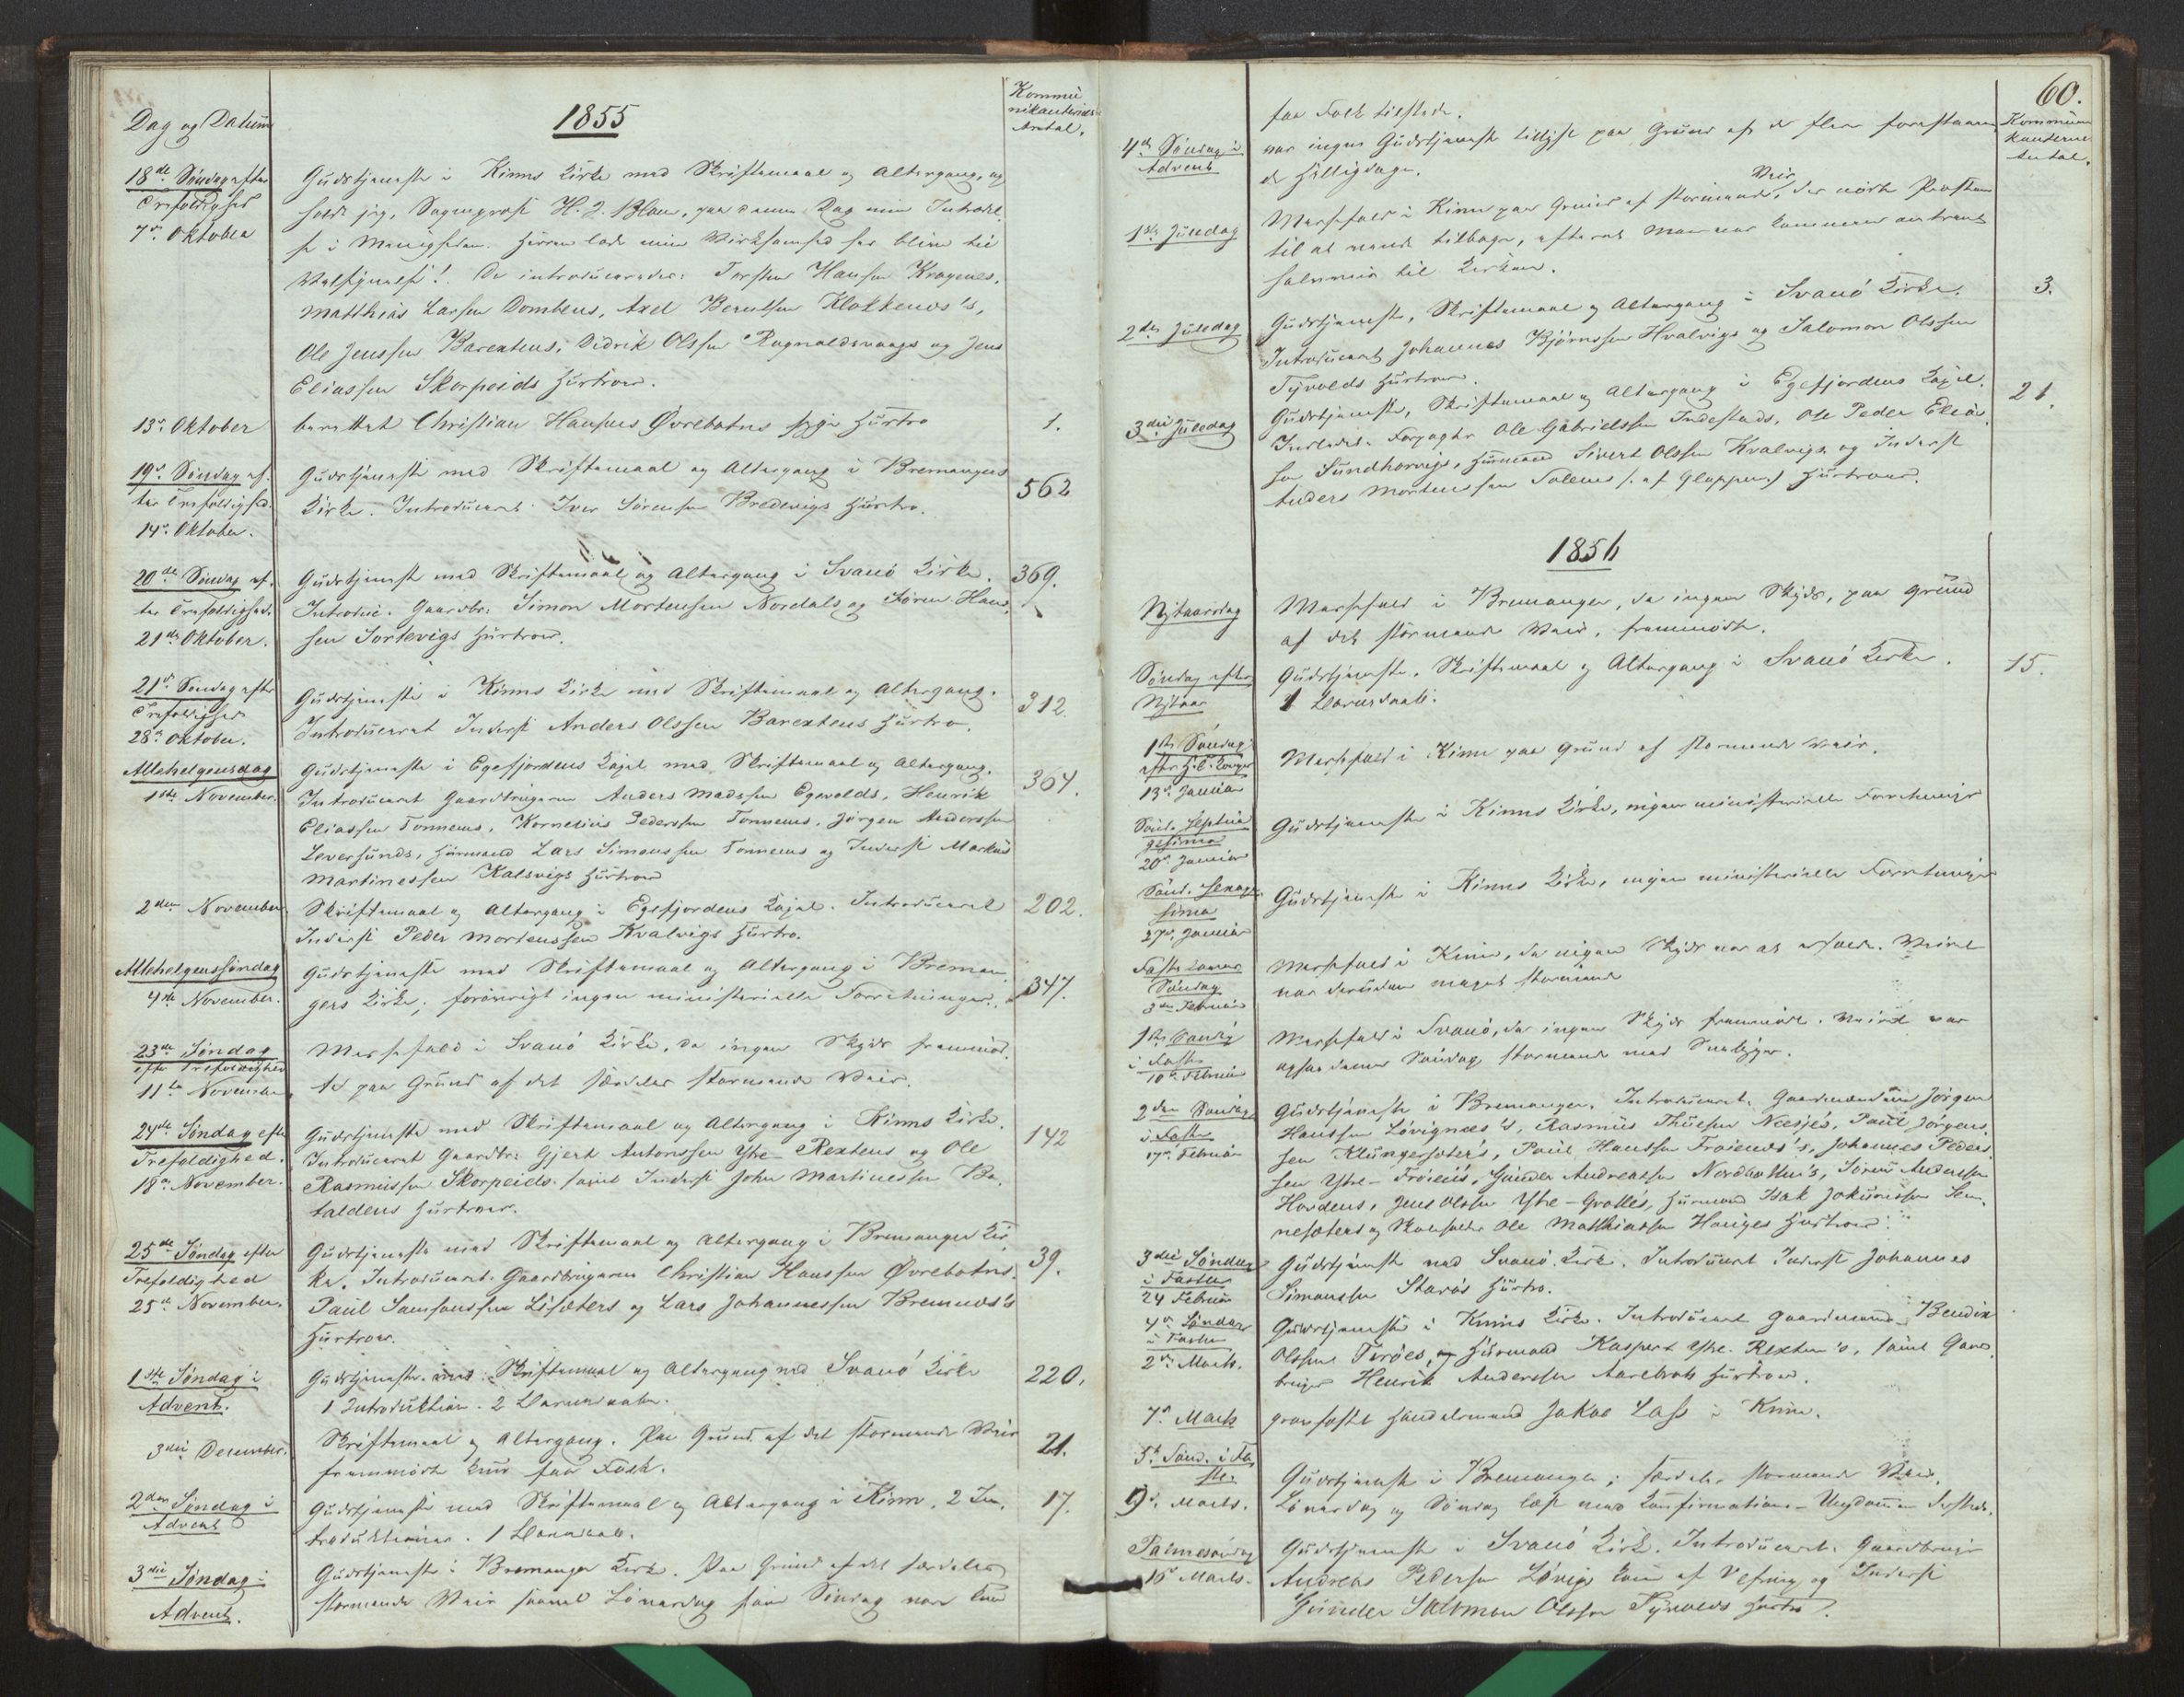 Dag og Datum
1855
Kommu
nikanternes
Antal.
18de Søndag efter
Trefoldighed
7de Oktober
Gudstjeneste i Kinns Kirke med Skriftemaal og Altergang, og
holdt jeg, Sogneprest H. J. Blom, paa denne Dag min Indtræd
se i Menigheden. Herren lade min Virksomhed her blive til
Velsignelse! De introduceredes: Torsten Hansen Kragenes,
Matthias Larsen Dombens, Axel Berntsen Klokkernæs's,
Ole Jenssen Barextens, Didrik Olsen Rognaldsvaags og Jens
Eliassen Skorpeids Hustroer.
13de Oktober
berettet Christian Hansens Øvrebotns syge Hustro
1.
19de Søndag ef-
ter Trefoldighed.
14de Oktober.
Gudstjeneste med Skriftemaal og Altergang i Bremangers
Kirke. Introduceret Iver Sørensen Bredevigs Hustro.
562
20de Søndag ef-
ter Trefoldighed.
21de Oktober.
Gudstjeneste med Skriftemaal og Altergang i Svanø Kirke.
Introduc. Gaardbr. Simon Mortensen Nordals og Søren Han-
sen Sortevigs Hustroer.
369.
21de Søndag efter
Trefoldighed
28de Oktober.
Gudstjeneste i Kinns Kirke med Skriftemaal og Altergang.
Introduceret Inderst Anders Olssen Barextens Hustro.
312.
Allehelgensdag
1ste November.
Gudstjeneste i Egefjordens Kapel med Skriftemaal og Altergang.
Introduceret Gaardbrugerne Anders Madssen Egevolds, Henrik
Eliassen Tonnems, Kornelius Pederssen Tonnems, Jørgen Anderssen
Leversunds, Husmand Lars Simonssen Tonnems og Inderst Markus
Martinessen Kalsvigs Hustroer
364.
2den November
Skriftemaal og Altergang i Egefjordens Kapel. Introduceret
Inderst Peder Mortenssen Kvalvigs Hustro.
202.
Allehelgenssøndag
4de November.
Gudstjeneste med Skriftemaal og Altergang i Breman-
gers Kirke; forøvrigt ingen ministerielle Forretninger.
347.
23de Søndag
efter Trefoldighed
11te November
Messefald i Svanø Kirke, da ingen Skyds fremmød-
te paa Grund af det særdeles stormende Veir.
24de Søndag efter
Trefoldighed.
18de November.
Gudstjeneste med Skriftemaal og Altergang i Kinns Kirke.
Introduceret Gaardbr. Gjert Antonssen Ytre-Rextens og Ole
Rasmussen Skorpeids samt Inderst John Martinessen Ba-
taldens Hustroer.
142
25de Søndag efter
Trefoldighed
25de November.
Gudstjeneste med Skriftemaal og Altergang i Bremanger Kir-
ke. Introduceret Gaardbrugerne Christian Hanssen Øvrebotns,
Paul Samsonssen Lisæters og Lars Johannessen Bremnæs's
Hustroer.
39.
1ste Søndag i
Advent.
Gudstjeneste med Skriftemaal og Altergang ved Svanø Kirke
1 Introduktion. 2 Barnedaab.
220.
3die December.
Skriftemaal og Altergang. Paa Grund af det stormende Veir
fremmødte kun faa Folk.
21.
2den Søndag i
Advent
Gudstjeneste med Skriftemaal og Altergang i Kinn. 2 In-
troduktioner. 1 Barnedaab.
17.
3die Søndag i
Advent.
Gudstjeneste i Bremanger Kirke. Paa Grund af det særdeles
stormende Veir saavel Løverdag som Søndag var kun
60.
Kommuni
kanternes
Antal.
faa Folk tilstede.
4de Søndag i
Advent
var ingen Gudstjeneste belyst paa Grund af de flere forestaaen
de Helligdage.
1ste Juledag
Messefald i Kinn paa Grund af stormende Veir, der nødte Presten
til at vende tilbage, efterat man var kommen omtrent
halvveis til Kirken.
2den Juledag
Gudstjeneste, Skriftemaal og Altergang i Svanø Kirke.
Introduceret Johannes Bjørnssen Hvalvigs og Salomon Olssen
Tyvolds Hustroer.
3.
3die Juledag
Gudstjeneste, Skriftemaal og Altergang i Egefjordens Kapel.
Indledet Forpagter Ole Gabrielssen Indestads, Ole Peder Elias-
sen Sundhorvigs, Husmand Sivert Olssen Kvalvigs og Inderst
Anders Mortenssen Solems (af Gloppen) Hustroer.
21.
1856
Nytaarsdag
Messefald i Bremanger, da ingen Skyds, paa Grund
af det stormende Veir, fremmødte.
Søndag efter
Nytaar
Gudstjeneste, Skriftemaal og Altergang i Svanø Kirke.
1 Barnedaab.
15.
1ste Søndag
efter H. 3 Konger
13de Januar
Messefald i Kinn paa Grund af stormende Veir.
Sønd. Septua
gesima
20de Januar
Gudstjeneste i Kinns Kirke, ingen ministerielle Forretninger
Sønd. Sexage-
sima
27de Januar
Gudstjeneste i Kinns Kirke, ingen ministerielle Forretninger
Fastelavns
Søndag
3die Februar
Messefald i Kinn, da ingen Skyds var at erholde. Veiret
var desuden meget stormende
1ste Søndag
i Faste
10de Februar
Messefald i Svanø, da ingen Skyds fremmødte. Veiret var
ogsaa denne Søndag stormende med Sneebyger.
2den Søndag
i Faste
17de Februar
Gudstjeneste i Bremanger. Introduceret Gaardmændene Jørgen
Hanssen Løvignæs's, Rasmus Thuesen Neesjes, Paul Jørgens-
sen Klungersæters, Paul Hanssen Froienæs's, Johannes Peders-
sen Ytre-Frøiens, Gunder Andreassen Nordbottens, Søren Anderssen
Hordens, Jens Olssen Ytre-Grotles, Husmand Isak Jokumssen Sen-
nesæters og Skolholder Ole Matthiassen Hauges Hustroer
3die Søndag
i Faste
24 Februar
Gudstjeneste ved Svanø Kirke. Introduceret Inderst Johannes
Simonssen Starøs Hustro.
4de Søndag
i Faste
2den Marts.
Gudstjeneste i Kinns Kirke. Introduceret Gaardmand Bendix
Olssen Terøes, og Husmand Kaspert Ytre-Rexten's, samt Gaard
bruger Henrik Anderssen Aarebrots Hustroer.
7de Marts
gravfæstet Handelsmand Jakob Lass i Kinn.
5te Sønd. i Fa
ste.
9de Marts.
Gudstjeneste i Bremanger; særdeles stormende Veir.
Løverdag og Søndag læst med Konfirmations-Ungdommen dersteds.
Palmesøndag
16de Marts.
Gudstjeneste i Svanø Kirke. Introduceret Gaardbruger
Andreas Pedersen Løvigs Kone af Vefring og Inderst
Gunder Salomon Olssen Tyvolds Hustro.